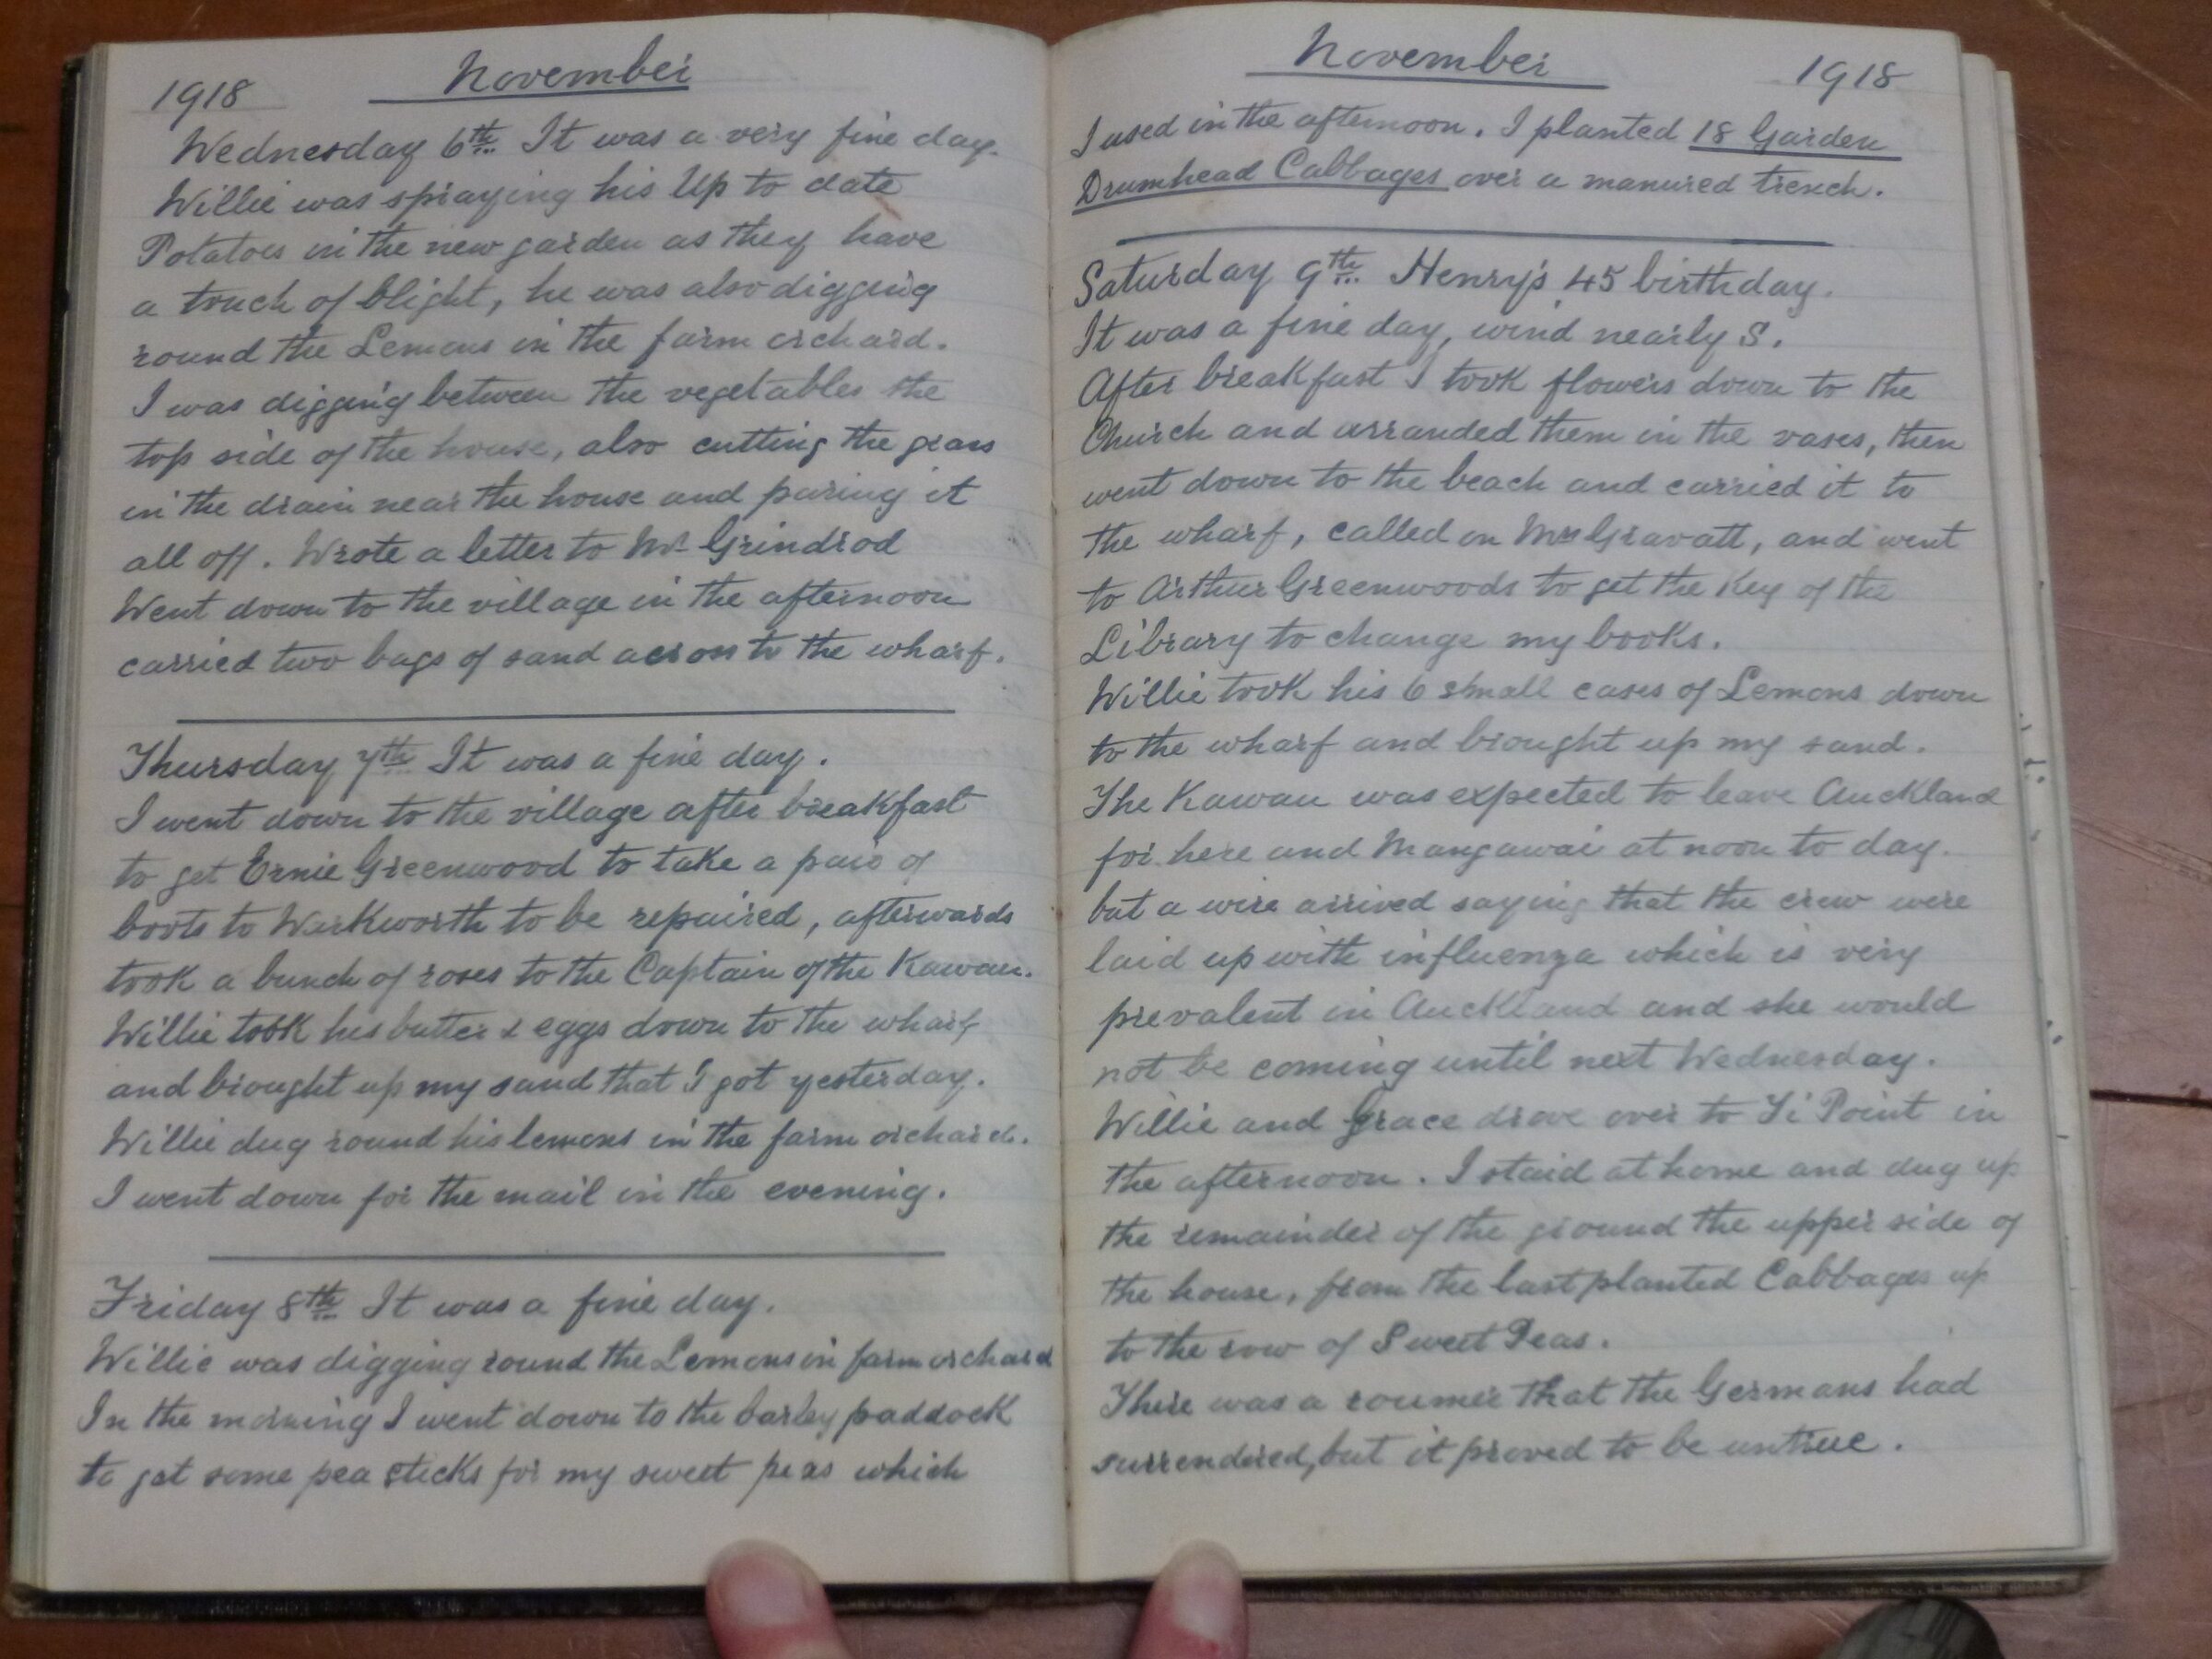 1918 November
Wednesday 6th It was a very fine day.
Willie was spraying his Up to date
Potatoes in the new garden as they have
a touch of blight, he was also digging
round the Lemons in the farm orchard.
I was digging between the vegetables the
top side of the house, also cutting the grass
in the drain near the house and paring it
all off. Wrote a letter to Mr Grindrod
Went down to the village in the afternoon
carried two bags of sand across to the wharf.
Thursday 7th It was a fine day.
I went down to the village after breakfast
to get Ernie Greenwood to take a pair of
boots to Warkworth to be repaired, afterwards
took a bunch of roses to the Captain of the Kawau.
Willie took his butter & eggs down to the wharf
and brought up my sand that I got yesterday.
Willie dug round his lemons in the farm orchard.
I went down for the mail in the evening.
Friday 8th It was a fine day.
Willie was digging round the Lemons in farm orchard
In the morning I went down to the barley paddock
to get some pea sticks for my sweet peas which
November 1918
I used in the afternoon. I planted 18 Garden
Drumhead Cabbages over a manured trench.
Saturday 9th Henry's 45 birthday.
It was a fine day, wind nearly S.
After breakfast I took flowers down to the
Church and arranded them in the vases, then
went down to the beach and carried it to
the wharf, called on Mrs Gravatt, and went
to Arthur Greenwoods to get the Key of the
Library to change my books.
Willie took his 6 small cases of Lemons down
to the wharf and brought up my sand.
The Kawau was expected to leave Auckland
for here and Mangawai at noon to day.
but a wire arrived saying that the crew were
laid up with influenza which is very
prevalent in Auckland and she would
not be coming until next Wednesday.
Willie and Grace drove over to Ti Point in
the afternoon. I staid at home and dug up
the remainder of the ground the upper side of
the house, from the last planted Cabbages up
to the row of Sweet Peas.
There was a roumer that the Germans had
surrendered, but it proved to be untrue.